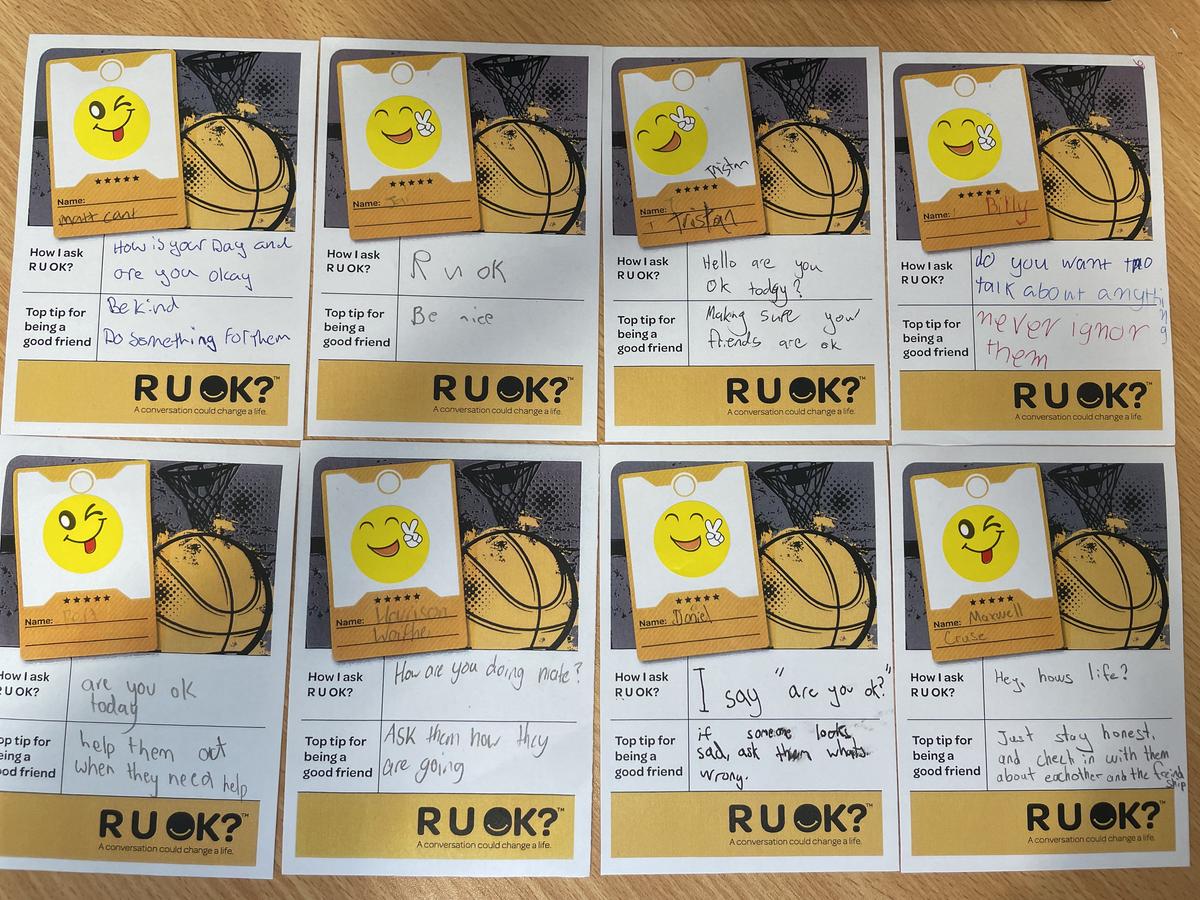 Name:
matt cant
How I ask
R U OK?
How is your Day and
are you okay
Top tip for
being a
good friend
Be kind
Do something For them
R U OK?™
A conversation could change a life.
Name:
How I ask
R U OK?
R u ok
Top tip for
being a
good friend
Be nice
R U OK?™
A conversation could change a life.
Tristan
Name:
Tristan
How I ask
R U OK?
Hello are you
Ok today?
Top tip for
being a
good friend
Making sure your
friends are ok
R U OK?™
A conversation could change a life.
Name:
Billy
How I ask
R U OK?
do you want to
talk about anything
Top tip for
being a
good friend
never ignor
them
R U OK?™
A conversation could change a life.
Name:
How I ask
R U OK?
are you ok
today
op tip for
being a
good friend
help them out
when they need help
R U OK?™
A conversation could change a life.
Name: Harrison
How I ask
R U OK?
How are you doing mate?
Top tip for
being a
good friend
Ask them how they
are going
R U OK?™
A conversation could change a life.
Name: Daniel
How I ask
R U OK?
I say "are you ok?"
Top tip for
being a
good friend
if someone looks
sad, ask them whats
wrong.
R U OK?™
A conversation could change a life.
Name: Maxwell
Cruse
How I ask
R U OK?
Hey, hows life?
Top tip for
being a
good friend
Just stay honest,
and check in with them
about eachother and the freind
ship
R U OK?™
A conversation could change a life.